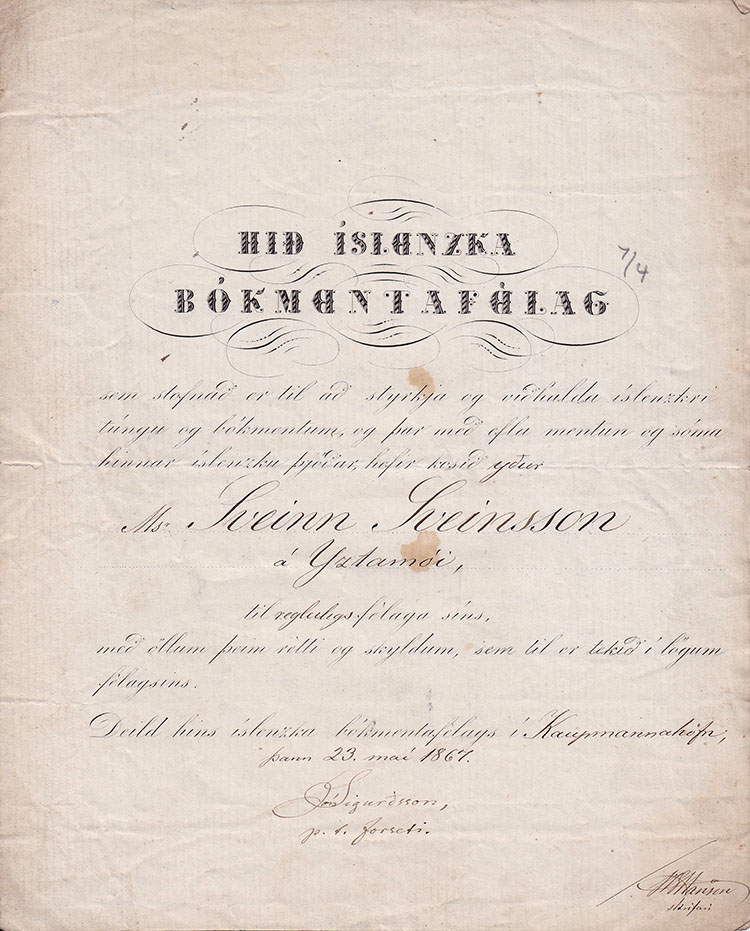 HIÐ ÍSLENZKA
7/4
BÓKMENTAFÉLAG
sem stofnað er til að styrkja og viðhalda íslenzkri
túngu og bókmentum, og þar með efla mentun og sóma
hinnar íslenzku þjóðar, hefir kosið yður
Msr Sveinn Sveinsson
á Yztamói,
til reglulegs félaga síns,
með öllum þeim rétti og skyldum, sem til er tekið í lögum
félagsins.
Deild hins íslenzka bókmentafélags í Kaupmannahöfn,
þann 23. maí 1867.
Jón Sigurðsson,
p. t. forseti.
Hansen
skrifari